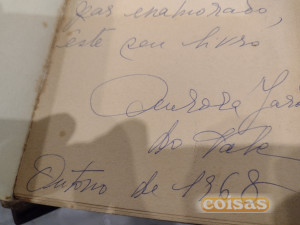 enamorado,
este seu livro
Aurora Jar
do Vale
Outono de 1968
coisas